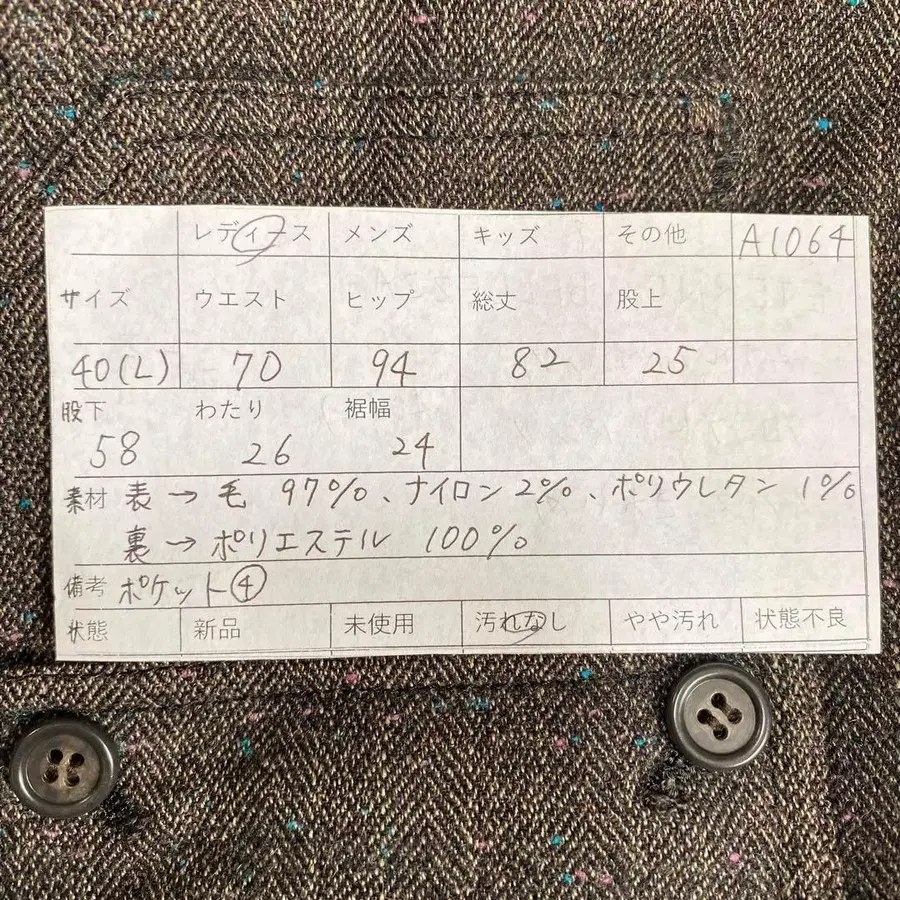 レディース メンズ キッズ その他 A1064
サイズ ウエスト ヒップ 総丈 股上
40(L) 70 94 82 25
股下 わたり 裾幅
58 26 24
素材 表→毛 97%、ナイロン2%、ポリウレタン 1%
裏→ポリエステル 100%
備考 ポケット④
状態 新品 未使用 汚れなし やや汚れ 状態不良